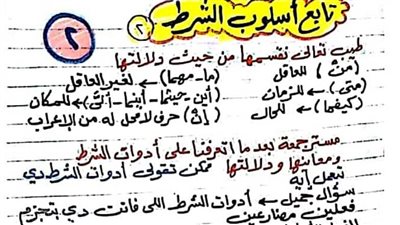 ٢
تابع أسلوب الشرط ٢
طيب تعالى نقسمها من حيث دلالتها
(مَنْ) للعاقل (ما - مهما) ← لغير العاقل
(متى) ← للزمان (أين - حيثما - أينما - أنَّى) ← للمكان
(كيفما) ← للحال (إنْ) حرف لا محل له من الإعراب
مستر جمعة بعد ما اتعرفنا على أدوات الشرط
ومعانيها ودلالتها ممكن تقولى أدوات الشرط دي
بتعمل إيه
سؤال جميل ← أدوات الشرط اللى فاتت دي بتجزم
فعلين مضارعين